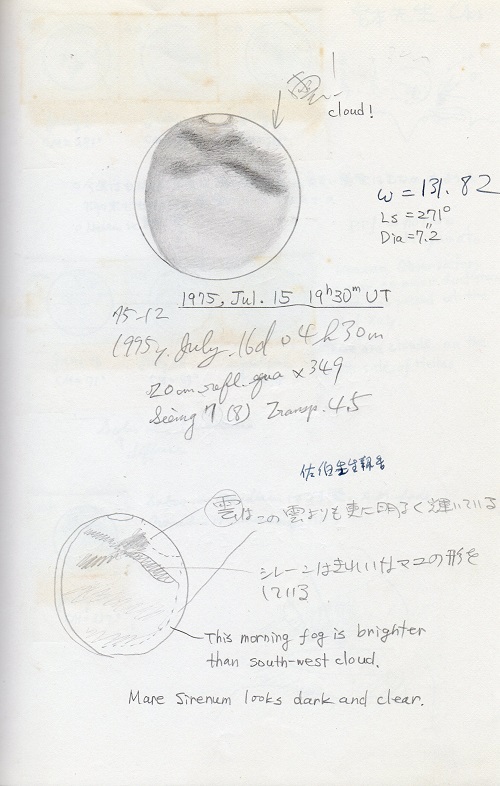 雲!
cloud!
ω=131.82
Ls=271°
Dia=7."2
1975, Jul. 15 19h30m UT
75-12
1995y. July. 16d 04h30m
20cm refl. equa ×349
Seeing 7 (8) Transp. 4.5
佐伯先生報告
雲はこの雲よりも更に明るく輝いている
シレーンはきれいなマユの形を
している
This morning fog is brighter
than south-west cloud.
Mare Sirenum looks dark and clear.